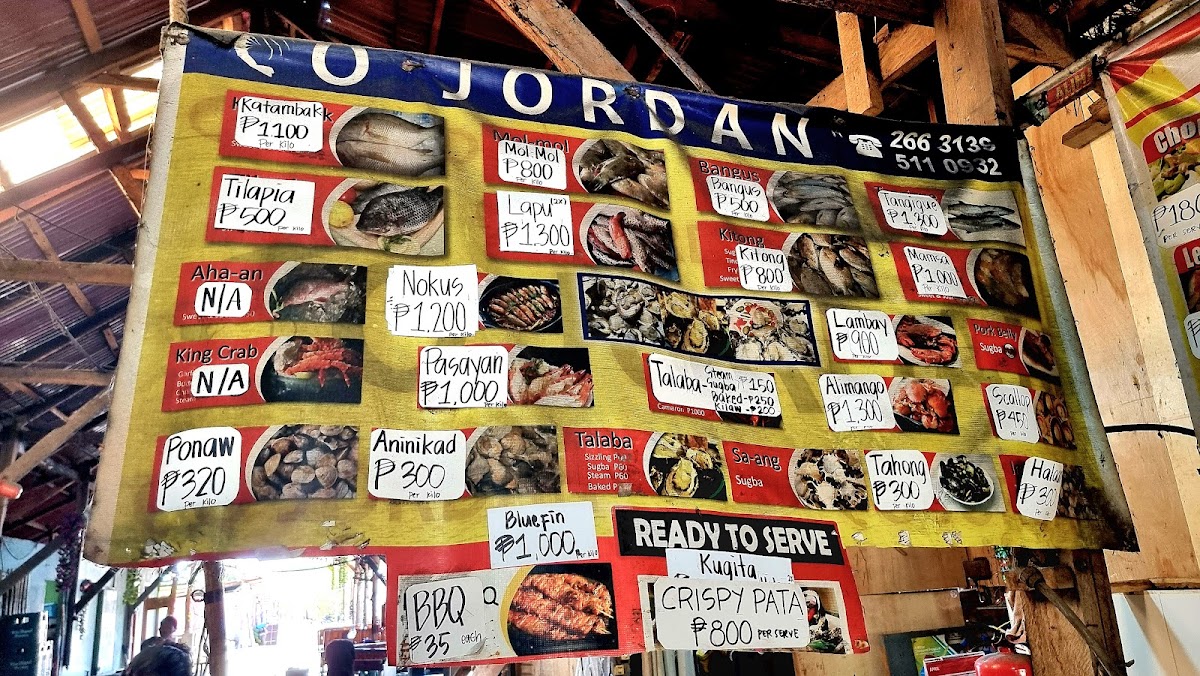 O JORDAN
266 3139
511 0932
Katambak
₱1100
Per Kilo
Mol-mol
Mol-Mol
₱800
Per Kilo
Bangus
Bangus
₱500
Per Kilo
Tangigue
₱1,300
Per Kilo
Tilapia
₱500
per Kilo
Lapu (2x)
₱1,300
per Kilo
Kitong
Kitong
₱800
Per Kilo
Mamsa
₱1,000
Per Kilo
Aha-an
N/A
Nokus
₱1,200
Per Kilo
Lambay
₱900
Per Kilo
Pork Belly
Sugba
King Crab
N/A
Pasayan
₱1,000
Per Kilo
Talaba-
Steam
Sugba ₱150
Baked-₱250
Kilaw-₱200
Cameron P1000
Alimango
₱1,300
Per Kilo
Scallop
₱450
Per Kilo
Ponaw
₱320
per Kilo
Aninikad
₱300
Per Kilo
Talaba
Sugba P60
Steam P60
Baked P
Sa-ang
Sugba
Tahong
₱300
Per Kilo
Halan
₱300
Per Kilo
Bluefin
₱1,000
Per Kilo
READY TO SERVE
Kugita
BBQ Q
₱35 each
CRISPY PATA
₱800 PER SERVE
Cho
₱180
PER SERV
Le